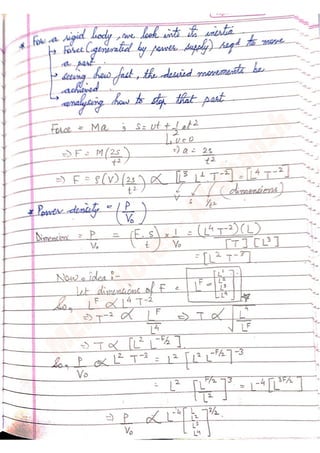 * For a rigid body, we look into its inertia
→ Force (generated by power supply) reqd to move a part
→ seeing how fast, the desired movements be achieved
→ analysing how to stop that part.
Force = Ma ; s = ut + 1/2 at²
↳ u=0
⇒ a = 2s/t²
⇒ F = M(2s/t²)
⇒ F = ρ(V)(2s/t²) ∝ [L³ L T⁻²] = [L⁴ T⁻²]
V s 1/t² (dimensions)
* Power density = (P/V₀)
Dimensions = P/V₀ = (F.s/t) × 1/V₀ = (L⁴ T⁻²)(L)/[T][L³]
= [L² T⁻³]
Now - idea :-
Let dimensions of F = [L^F = [L¹ L² L³ L⁴]]
So, L^F ∝ L⁴ T⁻²
⇒ T⁻² ∝ L^F/L⁴ ⇒ T ∝ √(L⁴/L^F)
⇒ T ∝ [L² L^(-F/2)]
So, P/V₀ ∝ L² T⁻³ = L² [L² L^(-F/2)]⁻³
= L² [L^(F/2)/L²]³ = L⁻⁴ [L^(3F/2)]
⇒ P/V₀ ∝ L⁻⁴ [L¹ L² L³ L⁴]^(3/2)